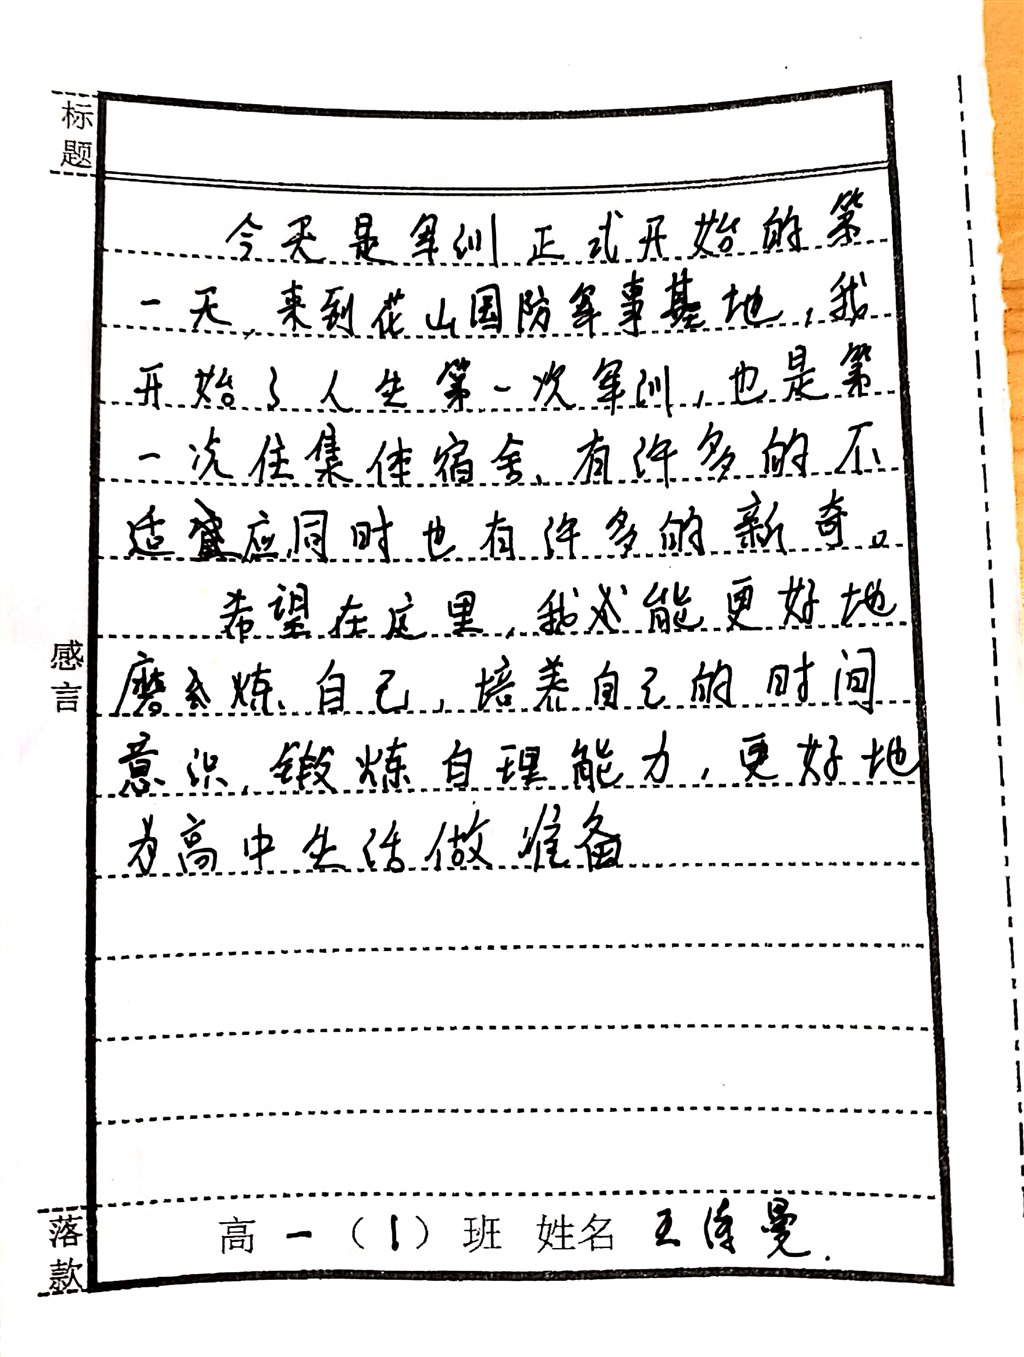 标题
今天是军训正式开始的第
一天,来到花山国防军事基地,我
开始了人生第一次军训,也是第
一次住集体宿舍、有许多的不
适应同时也有许多的新奇。
希望在这里,我能更好地
感言
磨炼自己,培养自己的时间
意识,锻炼自理能力,更好地
为高中生活做准备
落款
高一(1)班 姓名 王 曼.